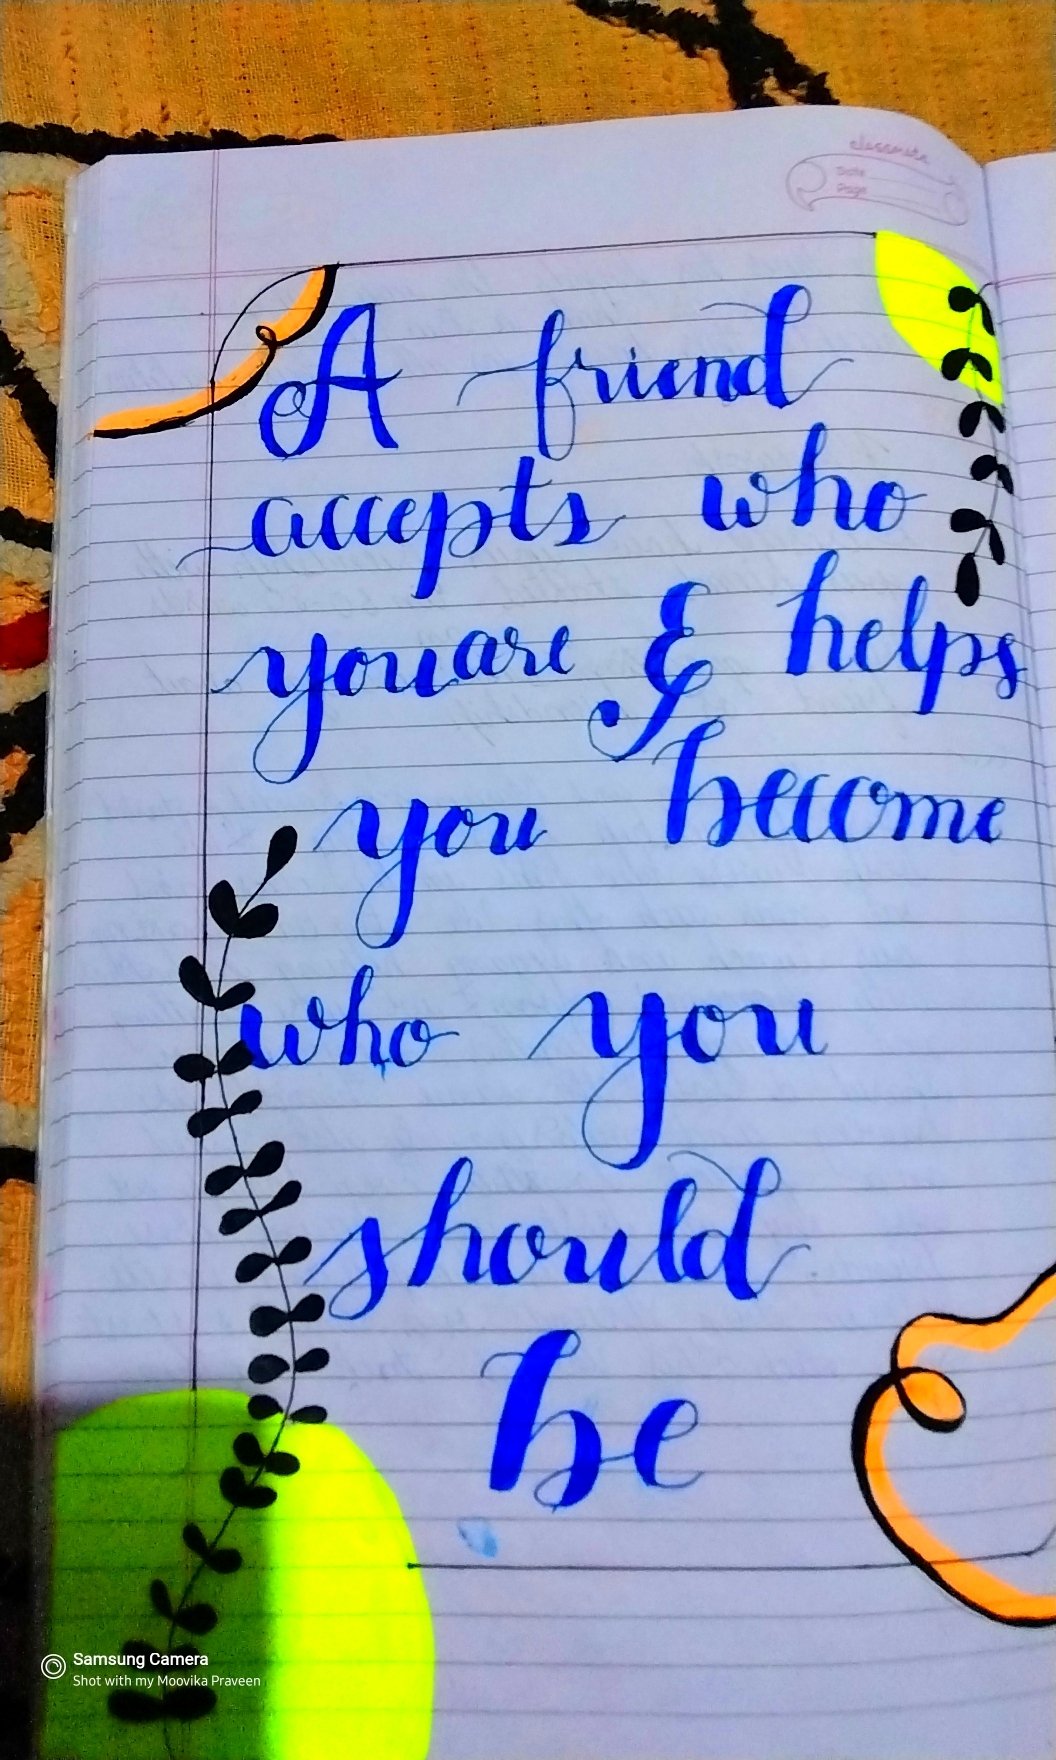 classmate
Date
Page
A friend
accepts who
you are & helps
you become
who you
should
be
Samsung Camera
Shot with my Moovika Praveen